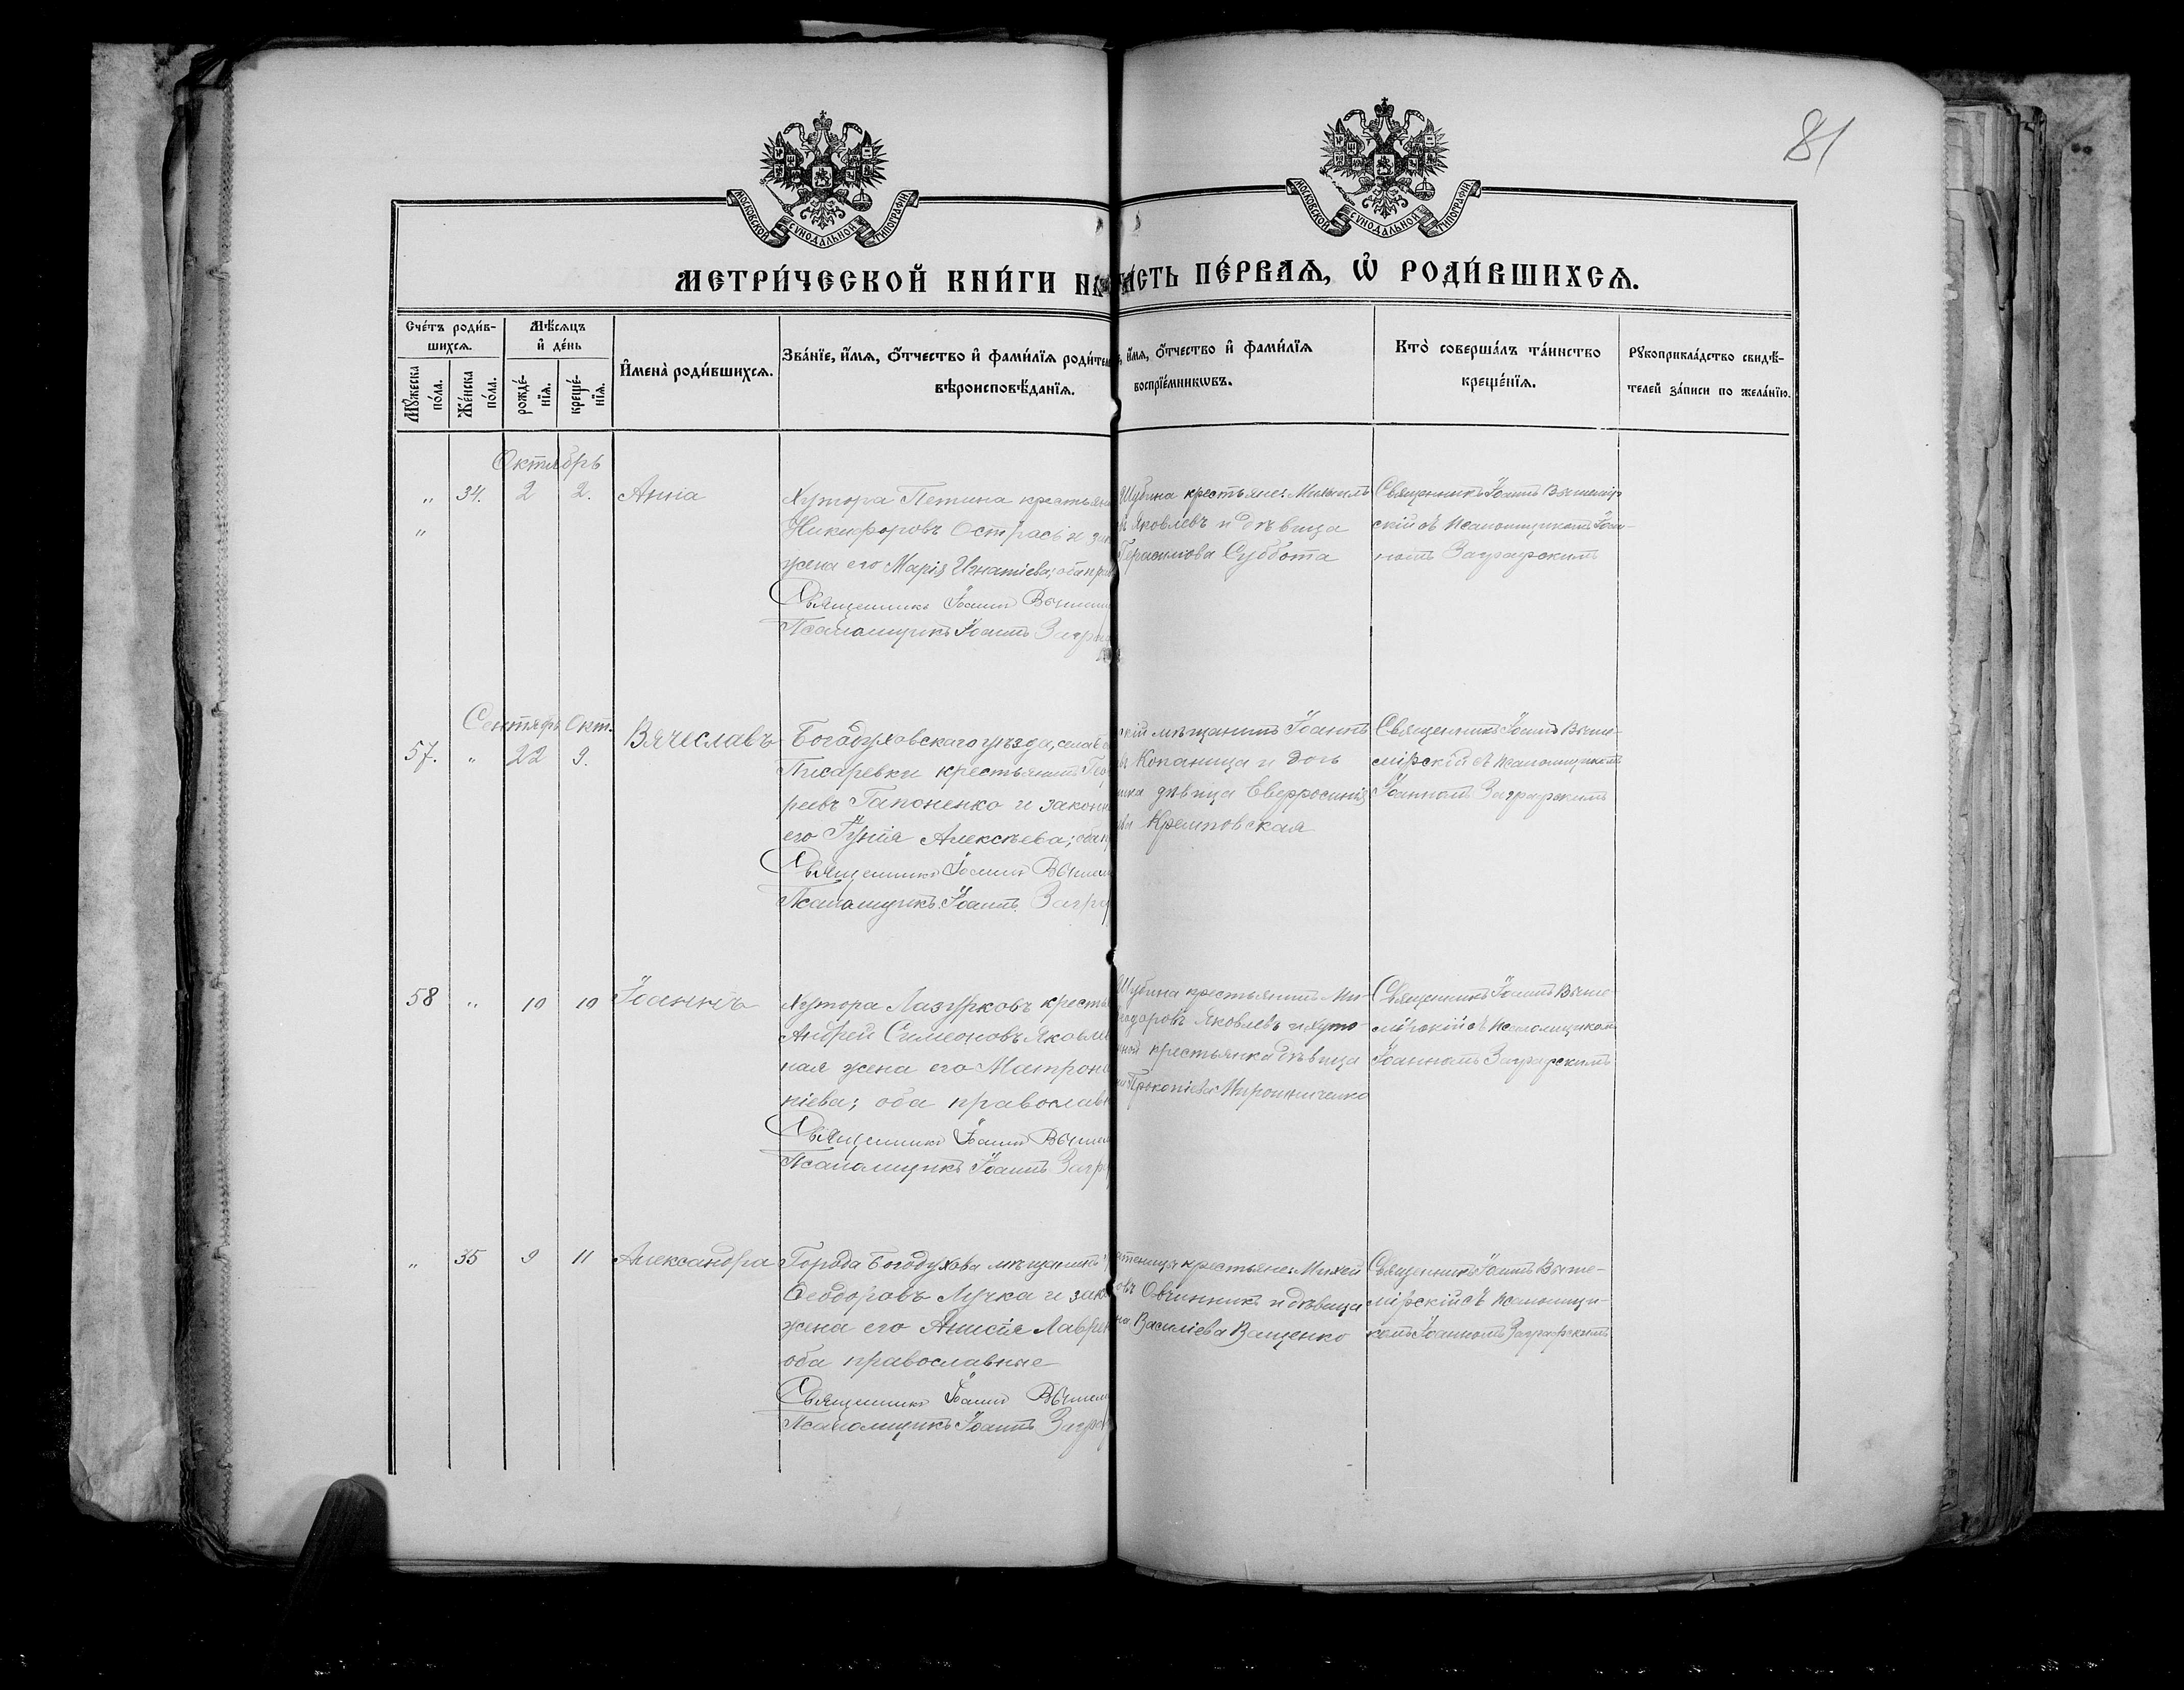 81
МОСКОВСКОЙ СѴНОДАЛЬНОЙ ТИПОГРАФІИ
МОСКОВСКОЙ СѴНОДАЛЬНОЙ ТИПОГРАФІИ
МЕТРИ́ЧЕСКОЙ КНИ́ГИ НА
ЧА́СТЬ ПЕ́РВАѦ, Ѡ҆ РОДИ́ВШИХСѦ.
Сче́тъ роди́в-
шихсѧ.
Мꙋ́жеска по́ла.
Же́нска по́ла.
Мѣ́сѧцъ
и҆ де́нь
рожде́-
нїѧ.
креще́-
нїѧ.
И҆мена̀ роди́вшихсѧ.
Зва́нїе, и҆́мѧ, ѻ҆́тчество и҆ фами́лїѧ роди́тел
вѣроисповѣ́данїѧ.
и҆́мѧ, ѻ҆́тчество и҆ фами́лїѧ
воспрїе́мникѡвъ.
Кто̀ соверша́лъ та́инство
креще́нїѧ.
Рꙋкоприкла́дство свидѣ́-
телей за́писи по жела́нїю.
Октябрь
„ 34. 2 2. Анна
„
Хутора Петина крестьян
Никифоровъ Острась и зак
жена его Марія Игнатіева; оба прав
Священникъ Іоаннъ Вышем
Псаломщикъ Іоаннъ Загр
Шубина крестьяне: Михаилъ
Яковлевъ и дѣвица
Герасимова Суббота
Священникъ Іоаннъ Вышемір
скій съ псаломщикомъ Іоан-
номъ Заграфскимъ
Сентябрь Окт.
57. „ 22 9. Вячеславъ
Богодуховскаго уѣзда, слав
Писаревки крестьянинъ Гео
Гапоненко и законн
его Алексѣева; оба п
Священникъ Іоаннъ Вышем
Псаломщикъ Іоаннъ Загра
скій мѣщанинъ Іоаннъ
Копаница и дочь
дѣвица Евфросинія
Кремповская
Священникъ Іоаннъ Выше-
мірскій съ псаломщикомъ
Іоанномъ Заграфскимъ
58 „ 10 10 Іоаннъ
Хутора Лазурковъ кресть
Андрей Симеоновъ Яковле
ная жена его Матрона
піева; оба православн
Священникъ Іоаннъ Вышем
Псаломщикъ Іоаннъ Загр
Шубина крестьянинъ Ми-
Яковлевъ и хуто-
крестьянка дѣвица
Прокопіева Мирошниченко
Священникъ Іоаннъ Выше-
мірскій съ псаломщикомъ
Іоанномъ Заграфскимъ
„ 35 9 11 Александра
Города Богодухова мѣщанинъ
Ѳеодоровъ Лучка и зак
жена его Анисія Лаврен
оба православные
Священникъ Іоаннъ Вышем
Псаломщикъ Іоаннъ Заграф
крестьяне: Михей
Овчинникъ и дѣвица
Василіева Ващенко
Священникъ Іоаннъ Выше-
мірскій съ псаломщи-
комъ Іоанномъ Заграфскимъ